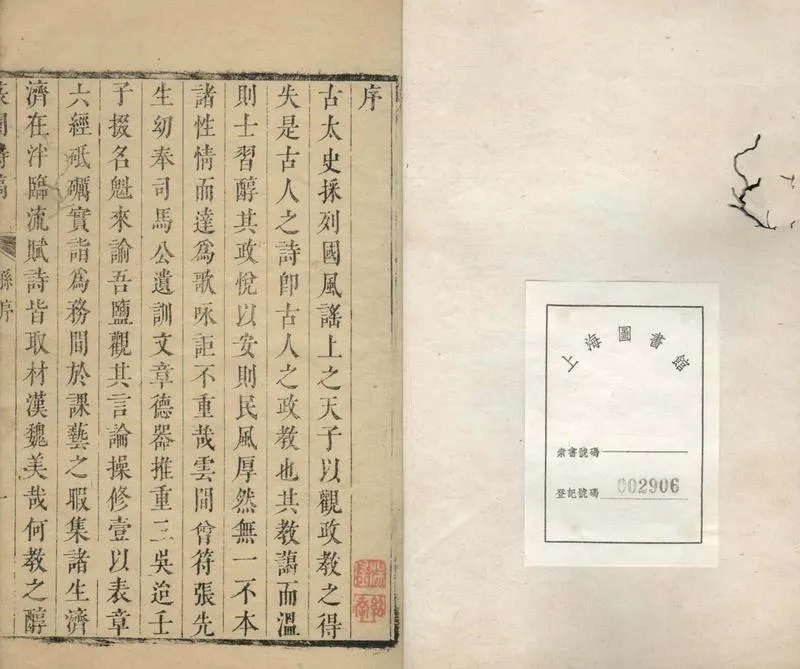 序
古太史採列國風謠上之天子以觀政教之得
失是古人之詩卽古人之政教也其教藹而溫
則士習醇其政悅以安則民風厚然無一不本
諸性情而達爲歌咏詎不重哉雲間曾符張先
生幼奉司馬公遺訓文章德器推重三吳迨壬
子掇名魁來諭吾鹽觀其言論操修壹以表章
六經砥礪實詣爲務間於課藝之暇集諸生濟
濟在泮臨流賦詩皆取材漢魏美哉何教之醇
詩稿
孫序
一
上海圖書館
索書號碼
登記號碼 002906